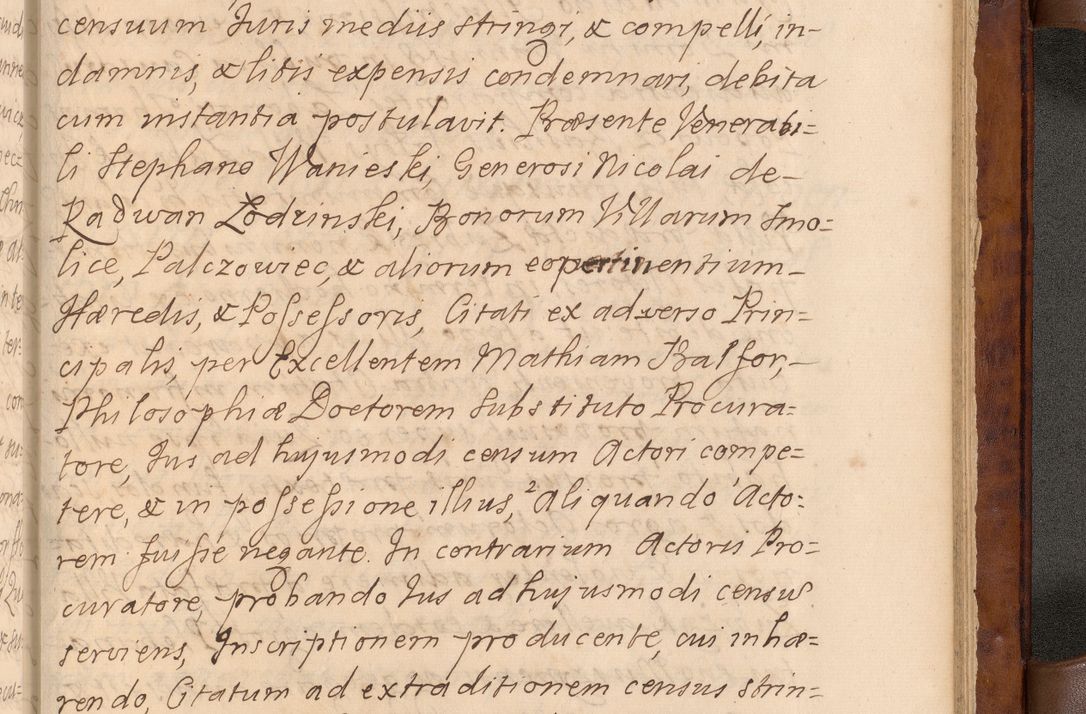 censuum Juris mediis stringi, & compelli, in-
damnis, & litis expensis condemnari, debita
cum instantia postulavit. Præsente Venerabi=
li Stephano Wanieski, Generosi Nicolai de-
Radwan Zodzinski, Bonorum Villarum Smo=
lice, Palczowiec, & aliorum eo pertinentium-
Hæredis, & Possessoris, Citati ex adverso Prin=
cipalis, per Excellentem Mathiam Kalfor,-
Philosophiæ Doctorem Substituto Procura=
tore, Jus ad hujusmodi censum Actori compe=
tere, & in possessione illius, 2 Aliquando 1 Acto=
rem fuisse negante. In contrarium Actoris Pro=
curatore, probando Jus ad hujusmodi censu
serviens, Inscriptionem producente, cui inhæ=
rendo, Citatum ad extraditionem census strin=